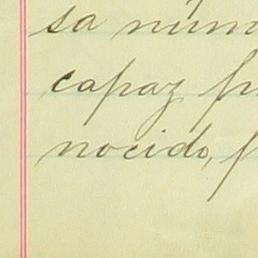 sa núm
capaz fr
nocido, f